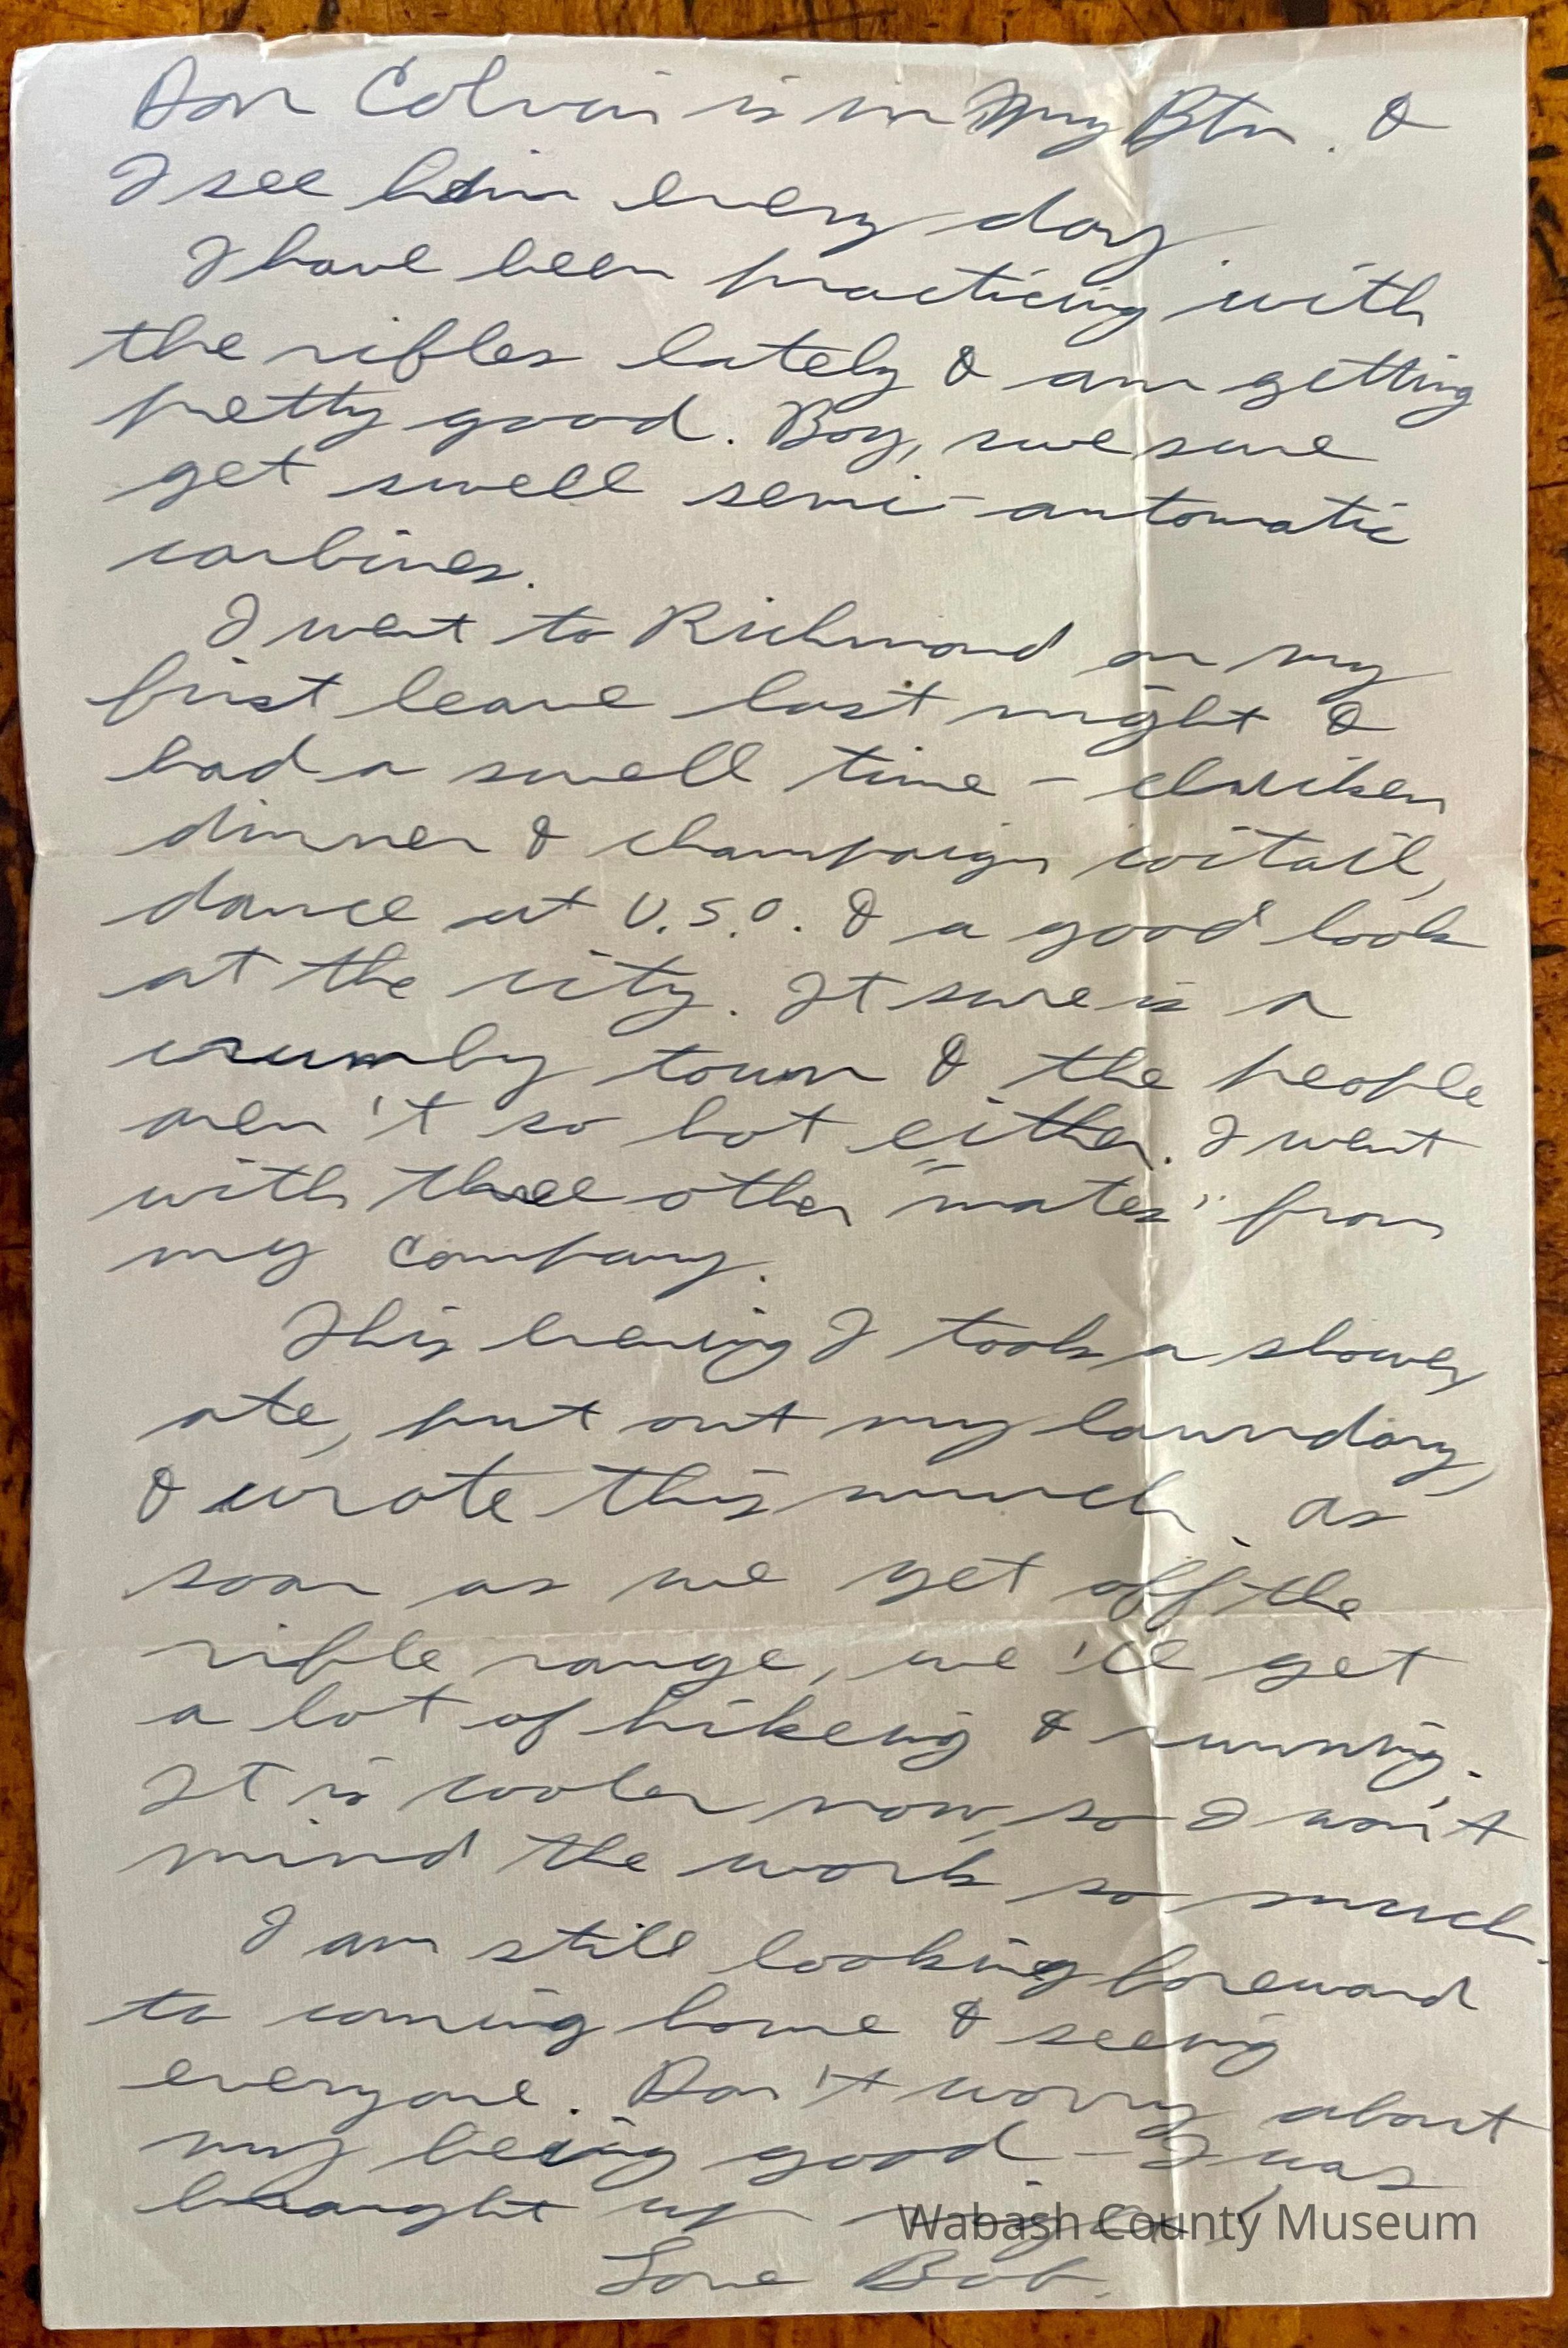 Don Colvin is in my Btn. &
I see him every day.
I have been practicing with
the rifles lately & am getting
pretty good. Boy, we sure
get swell semi-automatic
carbines.
I went to Richmond on my
first leave last night &
had a swell time - chicken
dinner & champaign coctail,
dance at U.S.O. & a good look
at the city. It sure is a
crumby town & the people
aren't so hot either. I went
with three other "mates" from
my company.
This evening I took a shower,
ate, put out my laundary,
& wrote this much. As
soon as we get off the
rifle range, we'll get
a lot of hikeing & running.
It is cooler now, so I won't
mind the work so much.
I am still looking foreward
to coming home & seeing
everyone. Don't worry about
my being good - I was
braught up right,
Love Bob.
Wabash County Museum